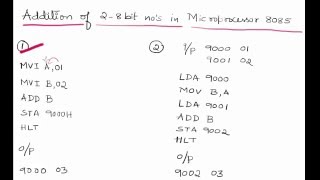 Addition of 2-8 bit no's in Microprocessor 8085
①
MVI A,01
MVI B,02
ADD B
STA 9000H
HLT
O/P
9000 03
②
I/P 9000 01
9001 02
LDA 9000
MOV B,A
LDA 9001
ADD B
STA 9002
HLT
O/P
9002 03